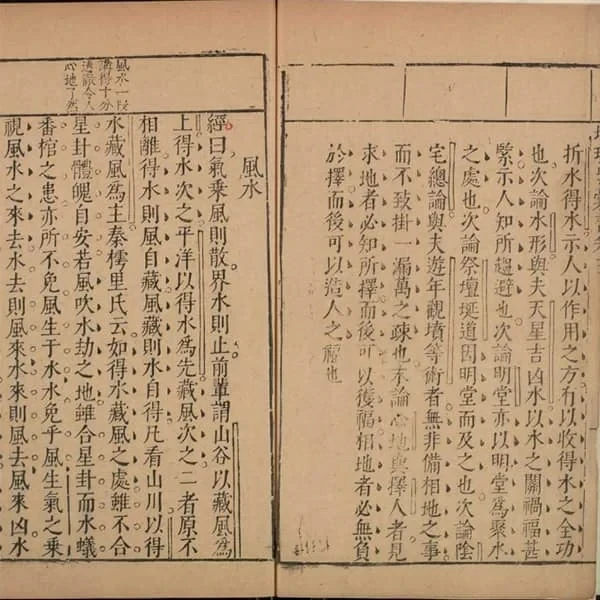 折水得水示人以作用之方有以收得水之全功
也次論水形與夫天星吉凶水以水之關禍福甚
緊示人知所趨避也次論明堂亦以明堂為聚水
之處也次論祭壇埏道因明堂而及之也次論陰
宅總論與夫遊年觀墳等術者無非備相地之事
而不致掛一漏萬之疎也末論心地與擇人者見
求地者必知所擇而後可以獲福相地者必無負
於擇而後可以造人之福也
風水一段
講得十分
透徹令人
心地了然
風水
經曰氣乘風則散界水則止前輩謂山谷以藏風為
上得水次之平洋以得水為先藏風次之二者原不
相離得水則風自藏風藏則水自得凡看山川以得
水藏風為主秦樗里氏云如得水藏風之處雖不合
星卦體魄自安若風吹水劫之地雖合星卦而水蟻
番棺之患亦所不免風生于水水免乎風生氣之乘
視風水之來去水去則風來水來則風去風來凶水